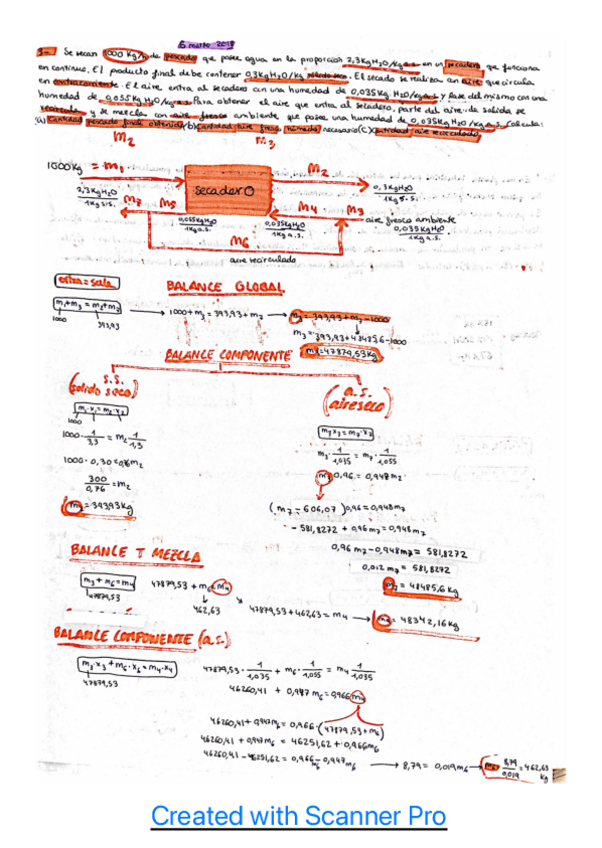 6 marzo 2018
3- Se secan 1000 kg/h de pescado que posee agua en la proporción 2,3kgH₂O/kg s.s en un secadero que funciona
en continuo. El producto final debe contener 0,3kgH₂O/kg sólido seco. El secado se realiza con aire que circula
en contracorriente. El aire entra al secadero con una humedad de 0,035kg H₂O/kg a.s y sale del mismo con una
humedad de 0,055kg H₂O/kg a.s. Para obtener el aire que entra al secadero, parte del aire de salida se
recircula y se mezcla con aire fresco ambiente que posee una humedad de 0,035kg H₂O/kg a.s. Calcula:
(a) Cantidad pescado final obtenido (b) Cantidad aire fresco húmedo necesario (c) cantidad aire recirculado
m₂ m₃
1000kg = m₁
secadero
m₂
2,3kgH₂O
1kg s.s.
0,3kgH₂O
1kg s.s.
m₇ m₅
m₄ m₃
0,055kgH₂O
1kg a.s.
0,035kgH₂O
1kg a.s.
aire fresco ambiente
0,035kgH₂O
1kg a.s.
m₆
aire recirculado
entra = sale
BALANCE GLOBAL
m₁+m₃ = m₂+m₇
1000 393,93
1000+m₃ = 393,93+m₇
m₃ = 393,93+m₇-1000
m₃ = 393,93+48485,6-1000
m₃=47879,53kg
BALANCE COMPONENTE
s.s.
(sólido seco)
m₁·x₁=m₂·x₂
1000
1000· 1/3,3 = m₂ 1/1,3
1000· 0,30 = 0,76m₂
300/0,76 = m₂
m₂ = 393,93kg
a.s.
(aire seco)
m₃x₃ = m₇·x₇
m₃· 1/1,035 = m₇· 1/1,055
m₃ 0,96 = 0,948m₇
(m₇ - 606,07)0,96 = 0,948m₇
- 581,8272 + 0,96m₇ = 0,948m₇
0,96 m₇-0,948m₇ = 581,8272
0,012m₇ = 581,8272
m₇ = 48485,6 kg
BALANCE T MEZCLA
m₃ + m₆ = m₄
47879,53
47879,53 + m₆ = m₄
462,63
47879,53 + 462,63 = m₄
m₄ = 48342,16kg
BALANCE COMPONENTE (a.s.)
m₃·x₃+m₆·x₆=m₄·x₄
47879,53
47879,53· 1/1,035 + m₆· 1/1,055 = m₄ 1/1,035
46260,41 + 0,947 m₆ = 0,966 m₄
46260,41 + 0,947m₆ = 0,966·(47879,53+m₆)
46260,41 + 0,947m₆ = 46251,62 + 0,966m₆
46260,41 - 46251,62 = 0,966m₆ - 0,947m₆
8,79 = 0,019m₆
m₆ = 8,79/0,019 = 462,63 kg
Created with Scanner Pro